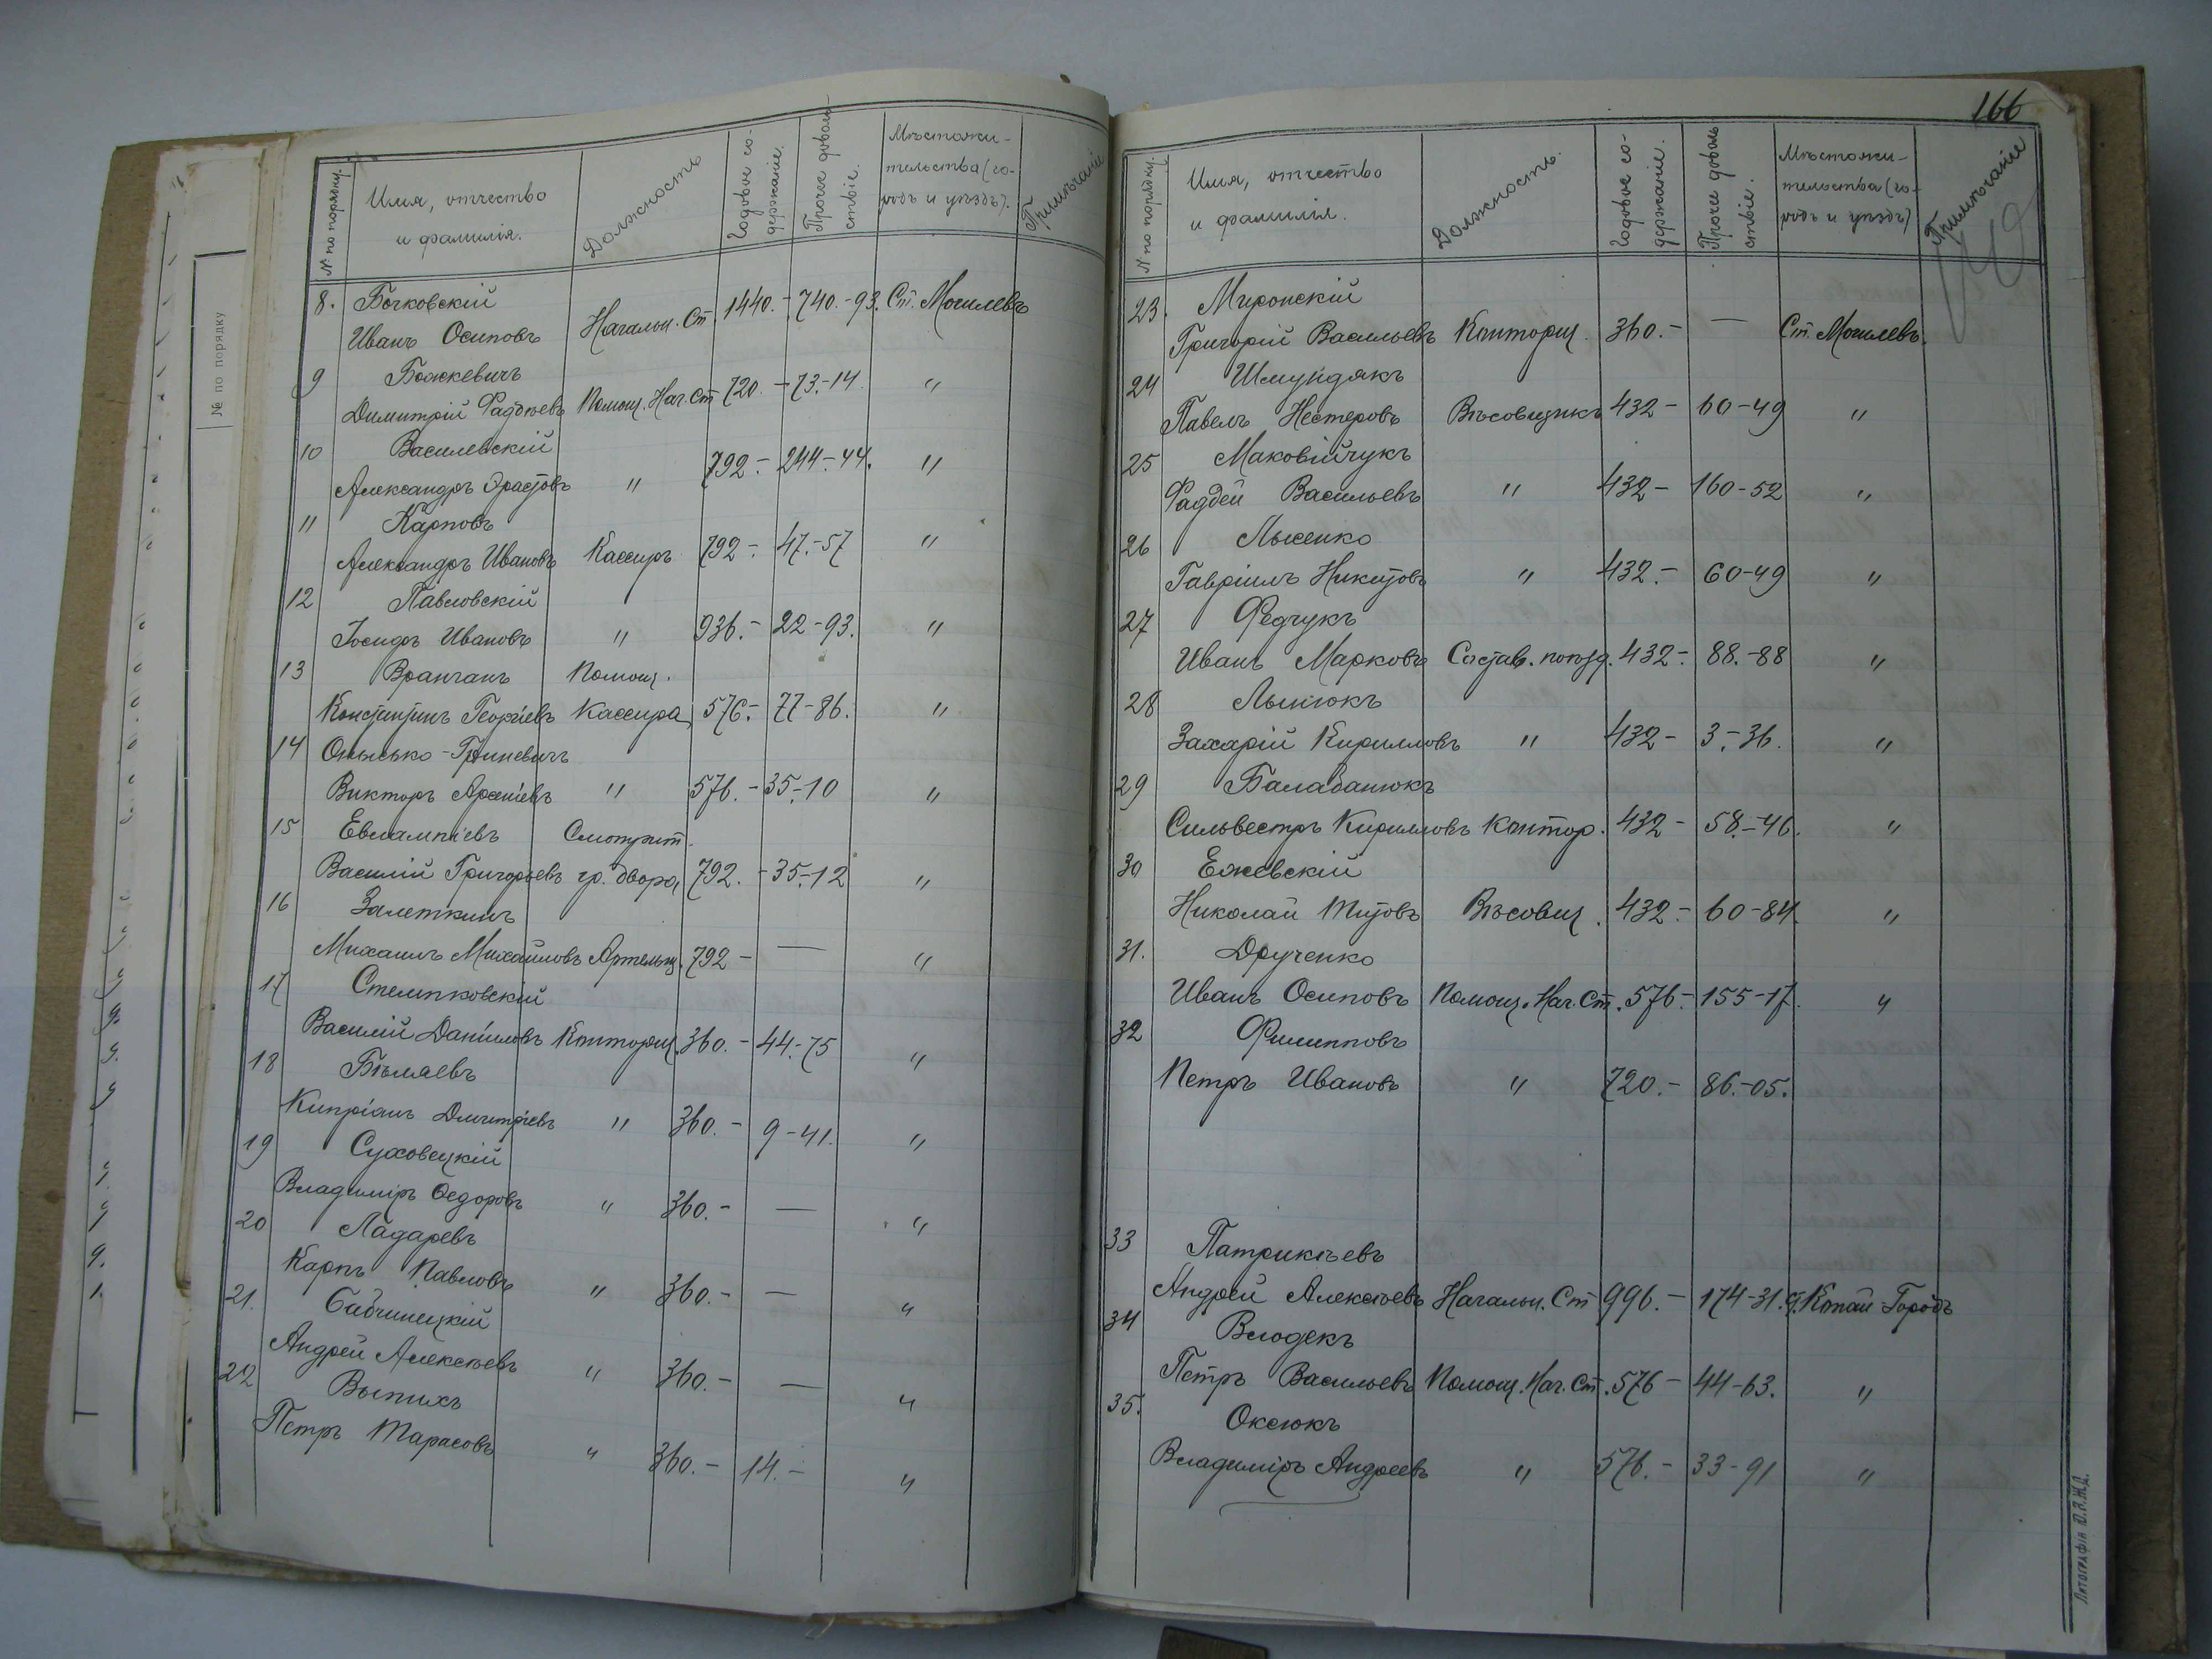 № по порядку
№ по порядку.
Имя, отчество
и фамилія.
Должность
Годовое со-
держаніе.
Прочее доволь-
ствіе.
Мѣстожи-
тельства (го-
родъ и уѣздъ).
Примѣчаніе
8. Бочковскій
Иванъ Осиповъ Начальн. Ст. 1440.- 740.-93. Ст. Могилевъ
9 Божкевичъ
Димитрій Фадѣевъ Помощ. Нач. Ст 720.- 73.-14. "
10 Василевскій
Александръ Эрастовъ " 792.- 244.-44. "
11 Карповъ
Александръ Ивановъ Кассиръ 792.- 47.-57 "
12 Павловскій
Іосифъ Ивановъ " 936.- 22-93. "
13 Вранчанъ Помощ.
Константинъ Георгіевъ Кассира 576.- 77-86. "
14 Онысько-Гриневичъ
Викторъ Арсеніевъ " 576.- 35.-10 "
15 Евлампіевъ Смотрит.
Василій Григорьевъ гр. двора, 792.- 35.-12 "
16 Залеткинъ
Михаилъ Михайловъ Артельщ. 792- — "
17 Стемпковскій
Василій Даніиловъ Конторщ. 360.- 44.-75 "
18 Бѣляевъ
Кипріанъ Дмитріевъ " 360.- 9-41. "
19 Суховецкій
Владиміръ Ѳедоровъ " 360.- — "
20 Ладаревъ
Карпъ Павловъ " 360.- — "
21. Сабчинецкій
Андрей Алексѣевъ " 360.- — "
22 Выпихъ
Петръ Тарасовъ " 360.- 14.- "
166
№ по порядку.
Имя, отчество
и фамилія.
Должность.
Годовое со-
держаніе.
Прочее доволь-
ствіе.
Мѣстожи-
тельства (го-
родъ и уѣздъ)
Примѣчаніе
23. Миронскій
Григорій Васильевъ Конторщ. 360.- — Ст. Могилевъ.
24 Шмундякъ
Павелъ Нестеровъ Вѣсовщикъ 432- 60-49 "
25 Маковійчукъ
Фаддей Васильевъ " 432- 160-52 "
26 Лысенко
Гавріилъ Никитовъ " 432.- 60-49 "
27 Федчукъ
Иванъ Марковъ Состав. поѣзд. 432.- 88.-88 "
28 Лынюкъ
Захарій Кирилловъ " 432- 3.-36. "
29 Балабанюкъ
Сильвестръ Кирилловъ Контор. 432- 58.-46. "
30 Ежевскій
Николай Титовъ Вѣсовщ. 432.- 60-84. "
31. Друченко
Иванъ Осиповъ Помощ. Нач. Ст. 576.- 155-17. "
32 Филипповъ
Петръ Ивановъ " 720.- 86.-05.
33 Патрикѣевъ
Андрей Алексѣевъ Начальн. Ст 996.- 174-31. Копай-Городъ
34 Влодекъ
Петръ Васильевъ Помощ. Нач. Ст. 576- 44-63. "
35. Оксюкъ
Владиміръ Андреевъ " 576.- 33-91 "
Литографія Ю.З.Ж.Д.